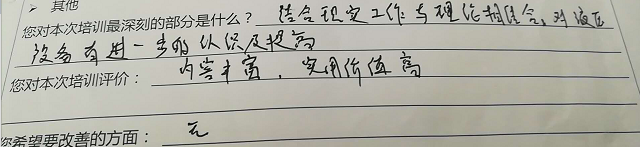 ➤ 其他
您对本次培训最深刻的部分是什么？ 结合现实工作与理论相结合，对液压
设备有进一步的认识及提高
您对本次培训评价： 内容丰富，实用价值高
您希望要改善的方面： 无